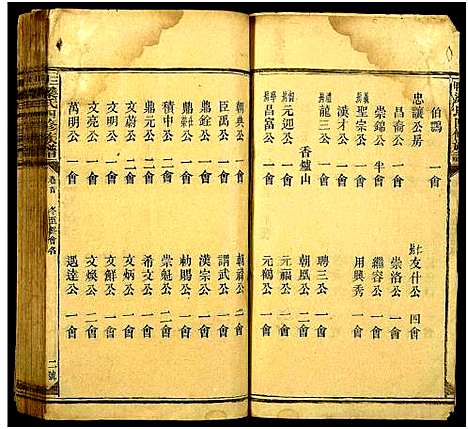 伯鷃 一會
忠讓公房
昌裔公 一會
崇錦公 半會
聖宗公 一會
漢才公 一會
龍三公 一會
香爐山
元迎公 一會
昌富公 一會
友什公 四會
崇洛公 一會
繼容公 一會
用興秀 一會
聘三公 一會
朝鳳公 一會
元福公 一會
元鶴公 一會
朝典公 一會
臣禹公 一會
鼎銓公 一會
鼎元公 二會
積中公 一會
文蔚公 二會
文明公 一會
文亮公 一會
萬明公 一會
朝福公 二會
謂武公 一會
漢宗公 一會
勅賜公 一會
崇魁公 二會
希文公 一會
文炳公 一會
文鮮公 一會
文煥公 一會
遇達公 一會
卷首
二號